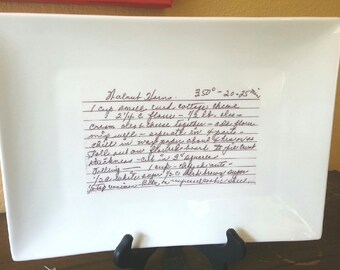 Walnut Horns 350° - 20-25 min
1 cup small curd cottage cheese
2 1/4 C flour - 1/2 lb. oleo
Cream oleo & cheese together - add flour
mix well - seperate in 4 parts -
chill in wax paper about 2 hours
Roll out on floured board to pie crust
thickness - cut in 3" squares
Filling - 1 cup - chopped nuts -
1/2 c. white sugar 1/2 c dark brown sugar
1 tsp cinnamon